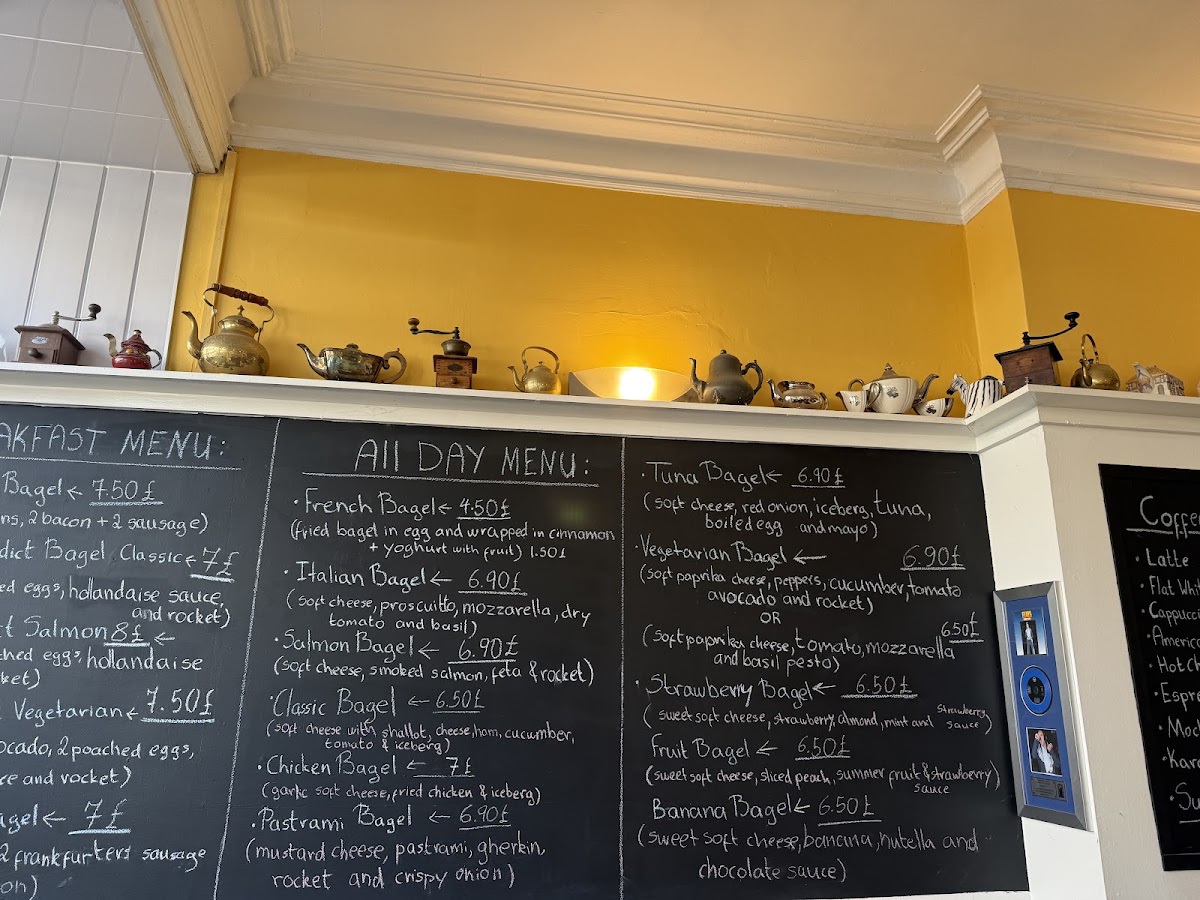 AKFAST MENU:
Bagel← 7.50£
ns, 2 bacon + 2 sausage)
dict Bagel Classic← 7£
ed eggs, hollandaise sauce,
and rocket)
t Salmon 8£ ←
ched eggs, hollandaise
ket)
Vegetarian← 7.50£
ocado, 2 poached eggs,
ce and rocket)
agel← 7£
2 frankfurters sausage
on)
All DAY MENU:
• French Bagel← 4.50£
(fried bagel in egg and wrapped in cinnamon
+ yoghurt with fruit) 1.50£
• Italian Bagel← 6.90£
(soft cheese, proscuitto, mozzarella, dry
tomato and basil)
• Salmon Bagel← 6.90£
(soft cheese, smoked salmon, feta & rocket)
• Classic Bagel ← 6.50£
(soft cheese with shallot, cheese, ham, cucumber,
tomato & iceberg)
• Chicken Bagel ← 7£
(garlic soft cheese, fried chicken & iceberg)
• Pastrami Bagel ← 6.90£
(mustard cheese, pastrami, gherkin,
rocket and crispy onion)
• Tuna Bagel← 6.90£
(soft cheese, red onion, iceberg, tuna,
boiled egg and mayo)
• Vegetarian Bagel ← 6.90£
(soft paprika cheese, peppers, cucumber, tomato
avocado and rocket)
OR
6.50£
(soft paprika cheese, tomato, mozzarella
and basil pesto)
• Strawberry Bagel← 6.50£
(sweet soft cheese, strawberry, almond, mint and strawberry
sauce)
Fruit Bagel ← 6.50£
(sweet soft cheese, sliced peach, summer fruit & strawberry)
sauce
Banana Bagel← 6.50£
(sweet soft cheese, banana, nutella and
chocolate sauce)
Coffee
• Latte
• Flat Whi
• Cappucci
• America
• Hot Ch
• Espre
• Moch
• Kara
• Su